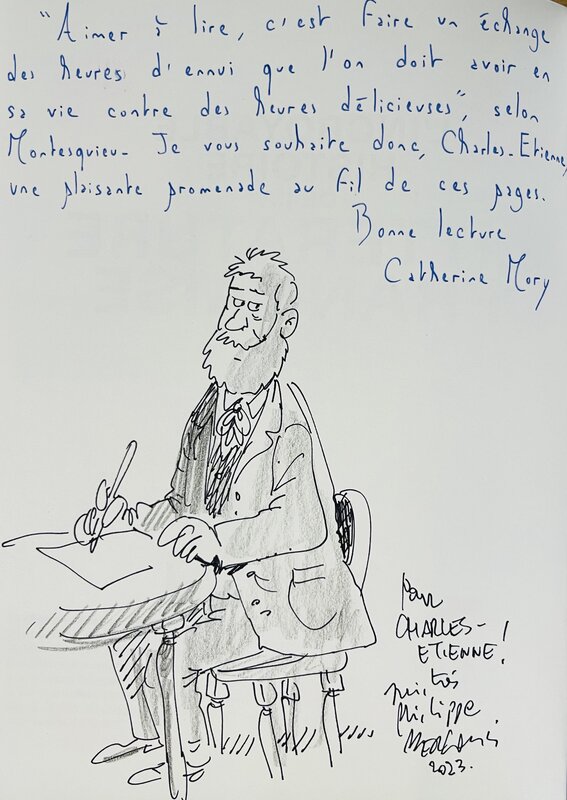 "Aimer à lire, c'est faire un échange
des heures d'ennui que l'on doit avoir en
sa vie contre des heures délicieuses", selon
Montesquieu. Je vous souhaite donc, Charles-Etienne,
une plaisante promenade au fil de ces pages.
Bonne lecture
Catherine Mory
Pour
CHARLES-
ETIENNE!
très
philippe
2023.